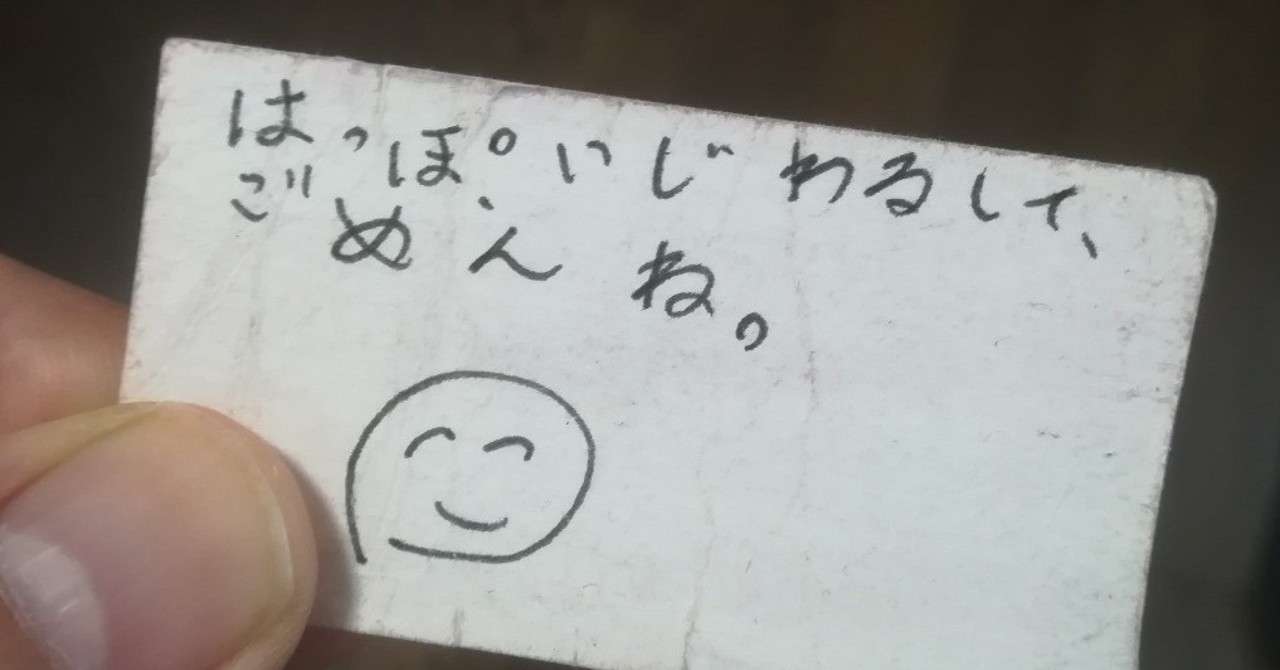 はっぽ゜いじわるして、
ごめんね。